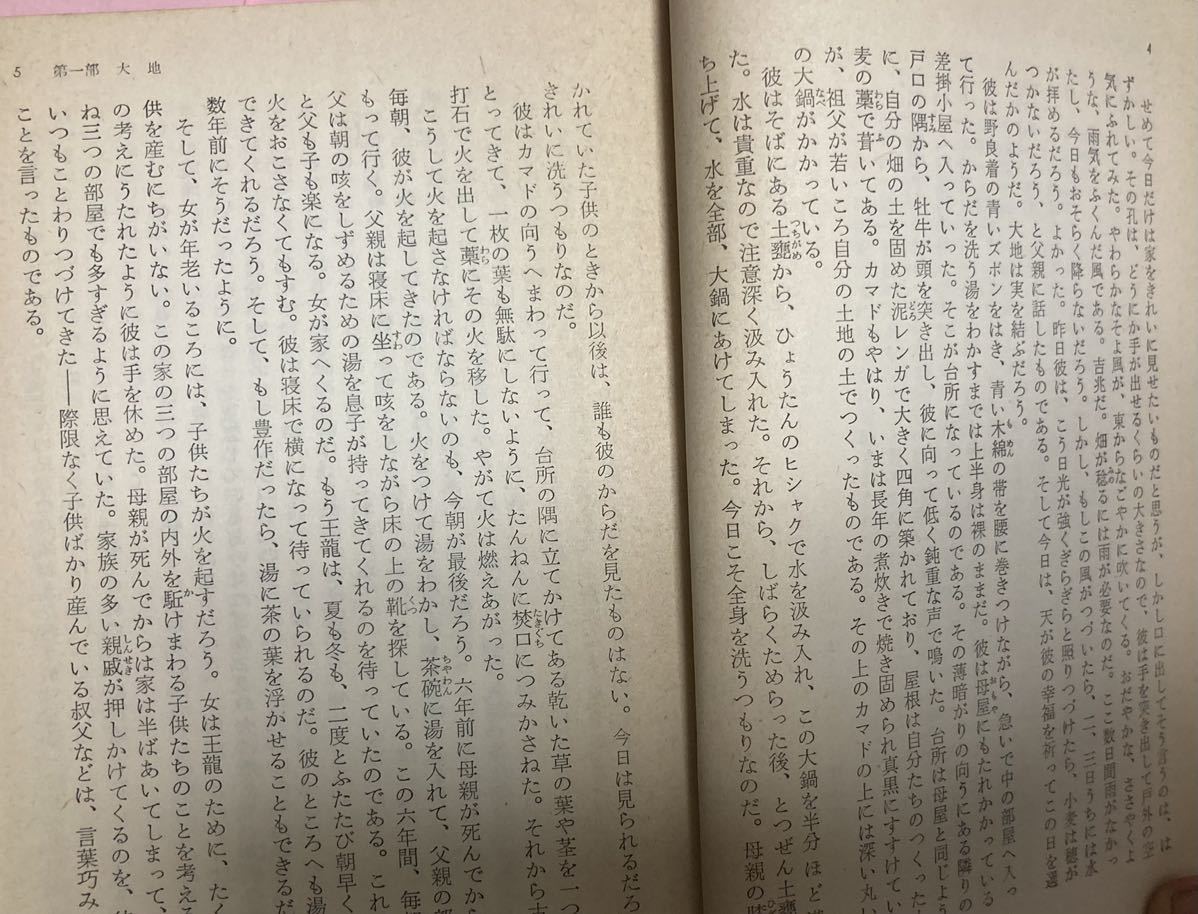 4
せめて今日だけは家をきれいに見せたいものだと思うが、しかし口に出してそう言うのは、は
ずかしい。その孔は、どうにか手が出せるくらいの大きさなので、彼は手を突き出して戸外の空
気にふれてみた。やわらかなそよ風が、東からなごやかに吹いてくる。おだやかな、ささやくよ
うな、雨気をふくんだ風である。吉兆だ。畑が稔るには雨が必要なのだ。ここ数日間雨がなかっ
たし、今日もおそらく降らないだろう。しかし、もしこの風がつづいたら、二、三日うちには水
が拝めるだろう。よかった。昨日彼は、こう日光が強くぎらぎらと照りつづけたら、小麦は穂が
つかないだろう、と父親に話したものである。そして今日は、天が彼の幸福を祈ってこの日を選
んだかのようだ。大地は実を結ぶだろう。
彼は野良着の青いズボンをはき、青い木綿の帯を腰に巻きつけながら、急いで中の部屋へ入っ
て行った。からだを洗う湯をわかすまでは上半身は裸のままだ。彼は母屋にもたれかかっている
差掛小屋へ入っていった。そこが台所になっているのである。その薄暗がりの向うにある隣りの
戸口の隅から、牡牛が頭を突き出し、彼に向って低く鈍重な声で鳴いた。台所は母屋と同じよう
に、自分の畑の土を固めた泥レンガで大きく四角に築かれており、屋根は自分たちのつくった
麦の藁で葺いてある。カマドもやはり、いまは長年の煮炊きで焼き固められ真黒にすすけてい
が、祖父が若いころ自分の土地の土でつくったものである。その上のカマドの上には深い丸い
の大鍋がかかっている。
彼はそばにある土甕から、ひょうたんのヒシャクで水を汲み入れ、この大鍋を半分ほど
た。水は貴重なので注意深く汲み入れた。それから、しばらくためらった後、とつぜん土甕
ち上げて、水を全部、大鍋にあけてしまった。今日こそ全身を洗うつもりなのだ。母親の膝
5 第一部 大地
かれていた子供のときから以後は、誰も彼のからだを見たものはない。今日は見られるだろ
きれいに洗うつもりなのだ。
彼はカマドの向うへまわって行って、台所の隅に立てかけてある乾いた草の葉や茎を一つ
とってきて、一枚の葉も無駄にしないように、たんねんに焚口につみかさねた。それから古
打石で火を出して藁にその火を移した。やがて火は燃えあがった。
こうして火を起さなければならないのも、今朝が最後だろう。六年前に母親が死んでか
毎朝、彼が火を起してきたのである。火をつけて湯をわかし、茶碗に湯を入れて、父親の
もって行く。父親は寝床に坐って咳をしながら床の上の靴を探している。この六年間、毎
父は朝の咳をしずめるための湯を息子が持ってきてくれるのを待っていたのである。これ
と父も子も楽になる。女が家へくるのだ。もう王龍は、夏も冬も、二度とふたたび朝早く
火をおこさなくてもすむ。彼は寝床で横になって待っていられるのだ。彼のところへも湯
できてくれるだろう。そして、もし豊作だったら、湯に茶の葉を浮かせることもできるだ
数年前にそうだったように。
そして、女が年老いるころには、子供たちが火を起すだろう。女は王龍のために、たく
供を産むにちがいない。この家の三つの部屋の内外を駈けまわる子供たちのことを考え
の考えにうたれたように彼は手を休めた。母親が死んでからは家は半ばあいてしまって、
ね三つの部屋でも多すぎるように思えていた。家族の多い親戚が押しかけてくるのを、
いつもことわりつづけてきた――際限なく子供ばかり産んでいる叔父などは、言葉巧み
ことを言ったものである。